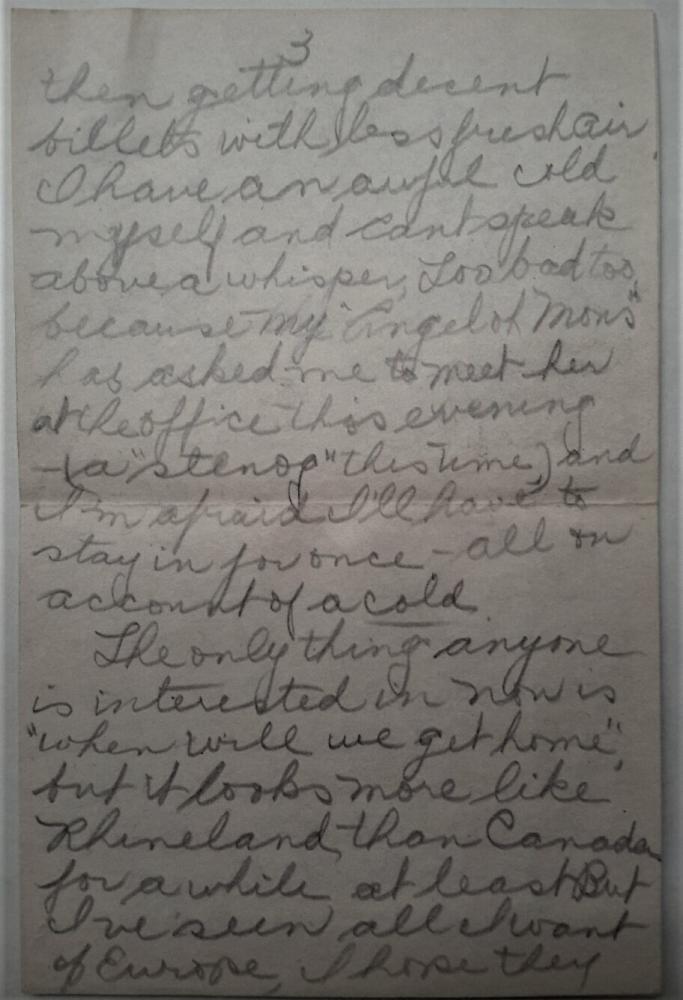 3
then getting decent
billets with less fresh air
I have an awful cold
myself and cant speak
above a whisper, Too bad too,
because my "Angel of Mons"
has asked me to meet her
at the office this evening
- (a "stenog" this time) and
I'm afraid I'll have to
stay in for once - all on
account of a cold
The only thing anyone
is interested in now is
"when will we get home",
but it looks more like
Rhineland than Canada
for a while at least But
I've seen all I want
of Europe, I hope they